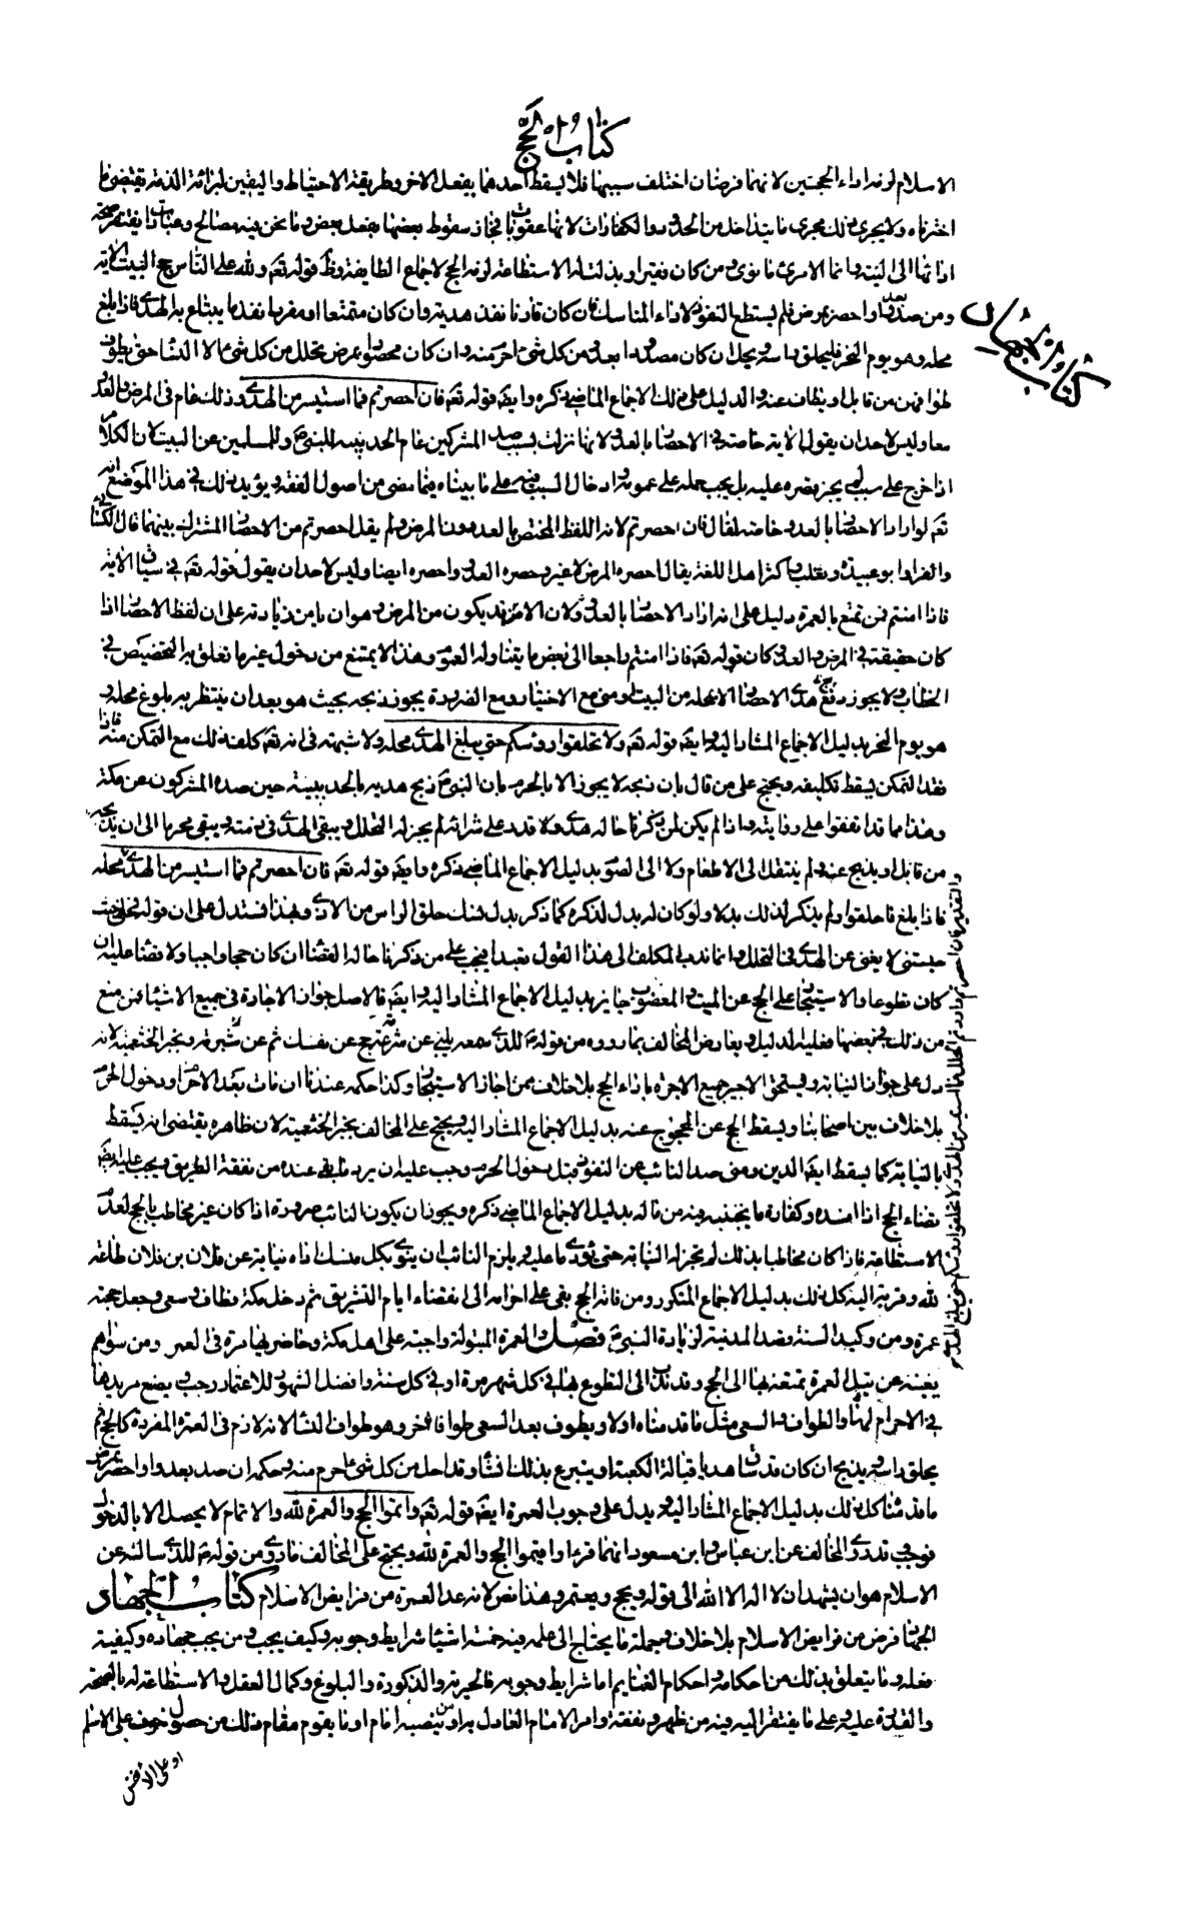 كتاب الحج
الاسلام لزمه اداء الحجتين لانهما فرضان اختلف سببهما فلا يسقط احدهما بفعل الاخر وطريقة الاحتياط واليقين لبرائة الذمة يقتضى ما
اخترناه ولا يجرى ذلك مجرى ما يتداخل من الحدود والكفارات لانها عقوبات فجاز سقوط بعضها بفعل بعض وما نحن فيه مصالح وعبادات يفتقر صحة
ادائها الى النية وانما لامرئ ما نوى ومن كان فقيرا وبذلت له الاستطاعة لزمه الحج لاجماع الطايفة وظ قوله تعه ولله على الناس حج البيت الاية
ومن صد بعدو او احصر بمرض فلم يستطع النفوذ لاداء المناسك فان كان قارنا نفذ هديه وان كان متمتعا او مفردا نفذ ما يبتاع به الهدى فاذا بلغ
محله وهو يوم النحر فليحلق راسه ويحل ان كان مصدودا بعدو من كل شئ احرم منه وان كان محصورا بمرض تحلل من كل شئ الا النساء حتى يطوف
طوافهن من قابل او يطاف عنه والدليل على ذلك الاجماع الماضى ذكره وايضه قوله تعه فان احصرتم فما استيسر من الهدى وذلك عام في المرض والعدو
معا وليس لاحد ان يقول الاية خاصة في الاحصار بالعدو لانها نزلت بسبب صد المشركين عام الحديبيه للنبى ص وللمسلمين عن البيت لان الكلام
اذا خرج على سبب لم يجز قصره عليه بل يجب حمله على عمومه وادخال السبب فيه على ما بيناه فيما مضى من اصول الفقه ويؤيد ذلك في هذا الموضع انه
تعه لو اراد الاحصار بالعدو خاصة لقال فان احصرتم لانه اللفظ المختص بالعدو دون المرض ولم يقل احصرتم من الاحصار المشترك بينهما قال الكسائى
والفراء وابو عبيدة وثعلب واكثر اهل اللغة يقال احصره المرض لا غير وحصره العدو واحصره ايضا وليس لاحد ان يقول قوله تعه في سياق الاية
فاذا امنتم فمن تمتع بالعمرة دليل على انه اراد الاحصار بالعدو ولان الامن قد يكون من المرض وهو ان يامن زيادته على ان لفظ الاحصار اذا
كان حقيقة في المرض والعدو كان قوله تعه فاذا امنتم راجعا الى بعض ما يتناوله العموم وهذا لا يمتنع من دخول غير ما تعلق به التخصيص في
الخطاب ولا يجوز ذبح هدى الاحصار الا محله من البيت او منى مع الاختيار ومع الضرورة يجوز ذبحه بحيث هو بعد ان ينتظر به بلوغ محله و
هو يوم النحر بدليل الاجماع المشار اليه وايضه قوله تعه ولا تحلقوا رؤسكم حتى يبلغ الهدى محله ولا شبهة في انه تعه كلفه ذلك مع التمكن منه فاذا
فقد التمكن فيسقط تكليفه ويحتج على من قال بان ذبحه لا يجوز الا بالحرم بان النبى ص ذبح هديه بالحديبية حين صده المشركون عن مكة
وهذا مما قد اتفقوا على روايته واذا لم يكن لمن ذكرنا حاله هدى ولا قدر على شرائه لم يجز له التحلل ويبقى الهدى في ذمته ويبقى محرما الى ان يذبحه
من قابل او يذبح عنه ولم ينتقل الى الاطعام ولا الى الصوم بدليل الاجماع الماضى ذكره وايضه قوله تعه فان احصرتم فما استيسر من الهدى محله
فاذا بلغ فاحلقوا ولم يذكر لذلك بدلا ولو كان له بدل لذكره كما ذكر بدل نسك حلق الراس من الاذى وبهذا نستدل على ان قوله فحلنى حيث
حبستنى لا يغنى عن الهدى في التحلل وانما ندب المكلف الى هذا القول تعبدا ويجب على من ذكرنا حاله القضاء ان كان حجا واجبا ولا قضاء عليه ان
كان تطوعا والاستيجار على الحج عن الميت والمعضوب جايز بدليل الاجماع المشار اليه وايضه فالاصل جواز الاجارة في جميع الاشياء فمن منع
من ذلك في بعضها فعليه الدليل ويعارض المخالف بما رووه من قوله ص للذى سمعه يلبى عن شبرمة حج عن نفسك ثم عن شبرمة وبخبر الخثعمية لانه
دل على جواز النيابة ويستحق الاجير جميع الاجرة باداء الحج بلا خلاف ممن اجاز الاستيجار وكذا حكمه عندنا ان مات بعد الاحرام ودخول الحرم
بلا خلاف بين اصحابنا ويسقط الحج عن المحجوج عنه بدليل الاجماع المشار اليه ويحتج على المخالف بخبر الخثعمية لان ظاهره يقتضى انه يسقط
بالنيابة كما يسقط ايضه الدين ومتى صد النائب عن النفوذ قبل دخول الحرم وجب عليه ان يرد ما بقى عنده من نفقة الطريق ويجب عليه ايضه
قضاء الحج اذا افسده وكفارة ما يجنيه فيه من ماله بدليل الاجماع الماضى ذكره ويجوز ان يكون النائب صرورة اذا كان غير مخاطب بالحج لعدم
الاستطاعة فاذا كان مخاطبا بذلك لم تجز له النيابة حتى يؤدى ما عليه ويلزم النائب ان ينوى بكل منسك اداه نيابة عن فلان بن فلان طاعة
لله وقربة اليه كل ذلك بدليل الاجماع المتكرر ومن فاته الحج بقى على احرامه الى انقضاء ايام التشريق ثم دخل مكة وطاف وسعى وجعل حجته
عمرة ومن وكيد السنة قصد المدينة لزيارة النبى ص فصل والعمرة المبتولة واجبة على اهل مكة وحاضريها مرة في العمر ومن سواهم
يغنيه عن تبتيل العمرة تمتعه بها الى الحج وقد ندب الى التطوع بها في كل شهر مرة او في كل سنة وافضل الشهور للاعتمار رجب ويضع مريدها
في الاحرام لها والطواف والسعى مثل ما قدمناه اولا ويطوف بعد السعى طوافا اخر وهو طواف النساء لانه لازم في العمرة المفردة كالحج ثم
يحلق راسه ويذبح ان كان قد ساق هديا قبالة الكعبة او يتبرع بذلك ان شاء وقد احل من كل شئ احرم منه وحكمه ان صد بعدو او احصر بمرض
ما قدمنا كل ذلك بدليل الاجماع المشار اليه ويدل على وجوب العمرة ايضه قوله تعه واتموا الحج والعمرة لله والاتمام لا يحصل الا بالدخول
فوجب وقد روى المخالف عن ابن عباس وابن مسعود انهما قرءا واقيموا الحج والعمرة لله ويحتج على المخالف بما روى من قوله ص للذى سأله عن
الاسلام هو ان يشهد ان لا اله الا الله الى قوله ويحج ويعتمر وهذا نص لانه عد العمرة من فرايض الاسلام كتاب الجهاد
الجهاد فرض من فرايض الاسلام بلا خلاف وجملة ما يحتاج الى علمه فيه خمسة اشياء شرايط وجوبه وكيف يجب ومن يجب جهاده وكيفية
فعله وما يتعلق بذلك من احكامه واحكام الغنايم اما شرايط وجوبه فالحرية والذكورة والبلوغ وكمال العقل والاستطاعة له بالصحة
والقدرة عليه وعلى ما يفتقر اليه فيه من ظهر ونفقة وامر الامام العادل به او من ينصبه الامام او ما يقوم مقام ذلك من حصول خوف على الاسلام
او على الانفس
كتاب الجهاد
والتقدير فان احصرتم واردتم التحلل فما استيسر من الهدى ولا تحلقوا رؤسكم حتى يبلغ الهدى